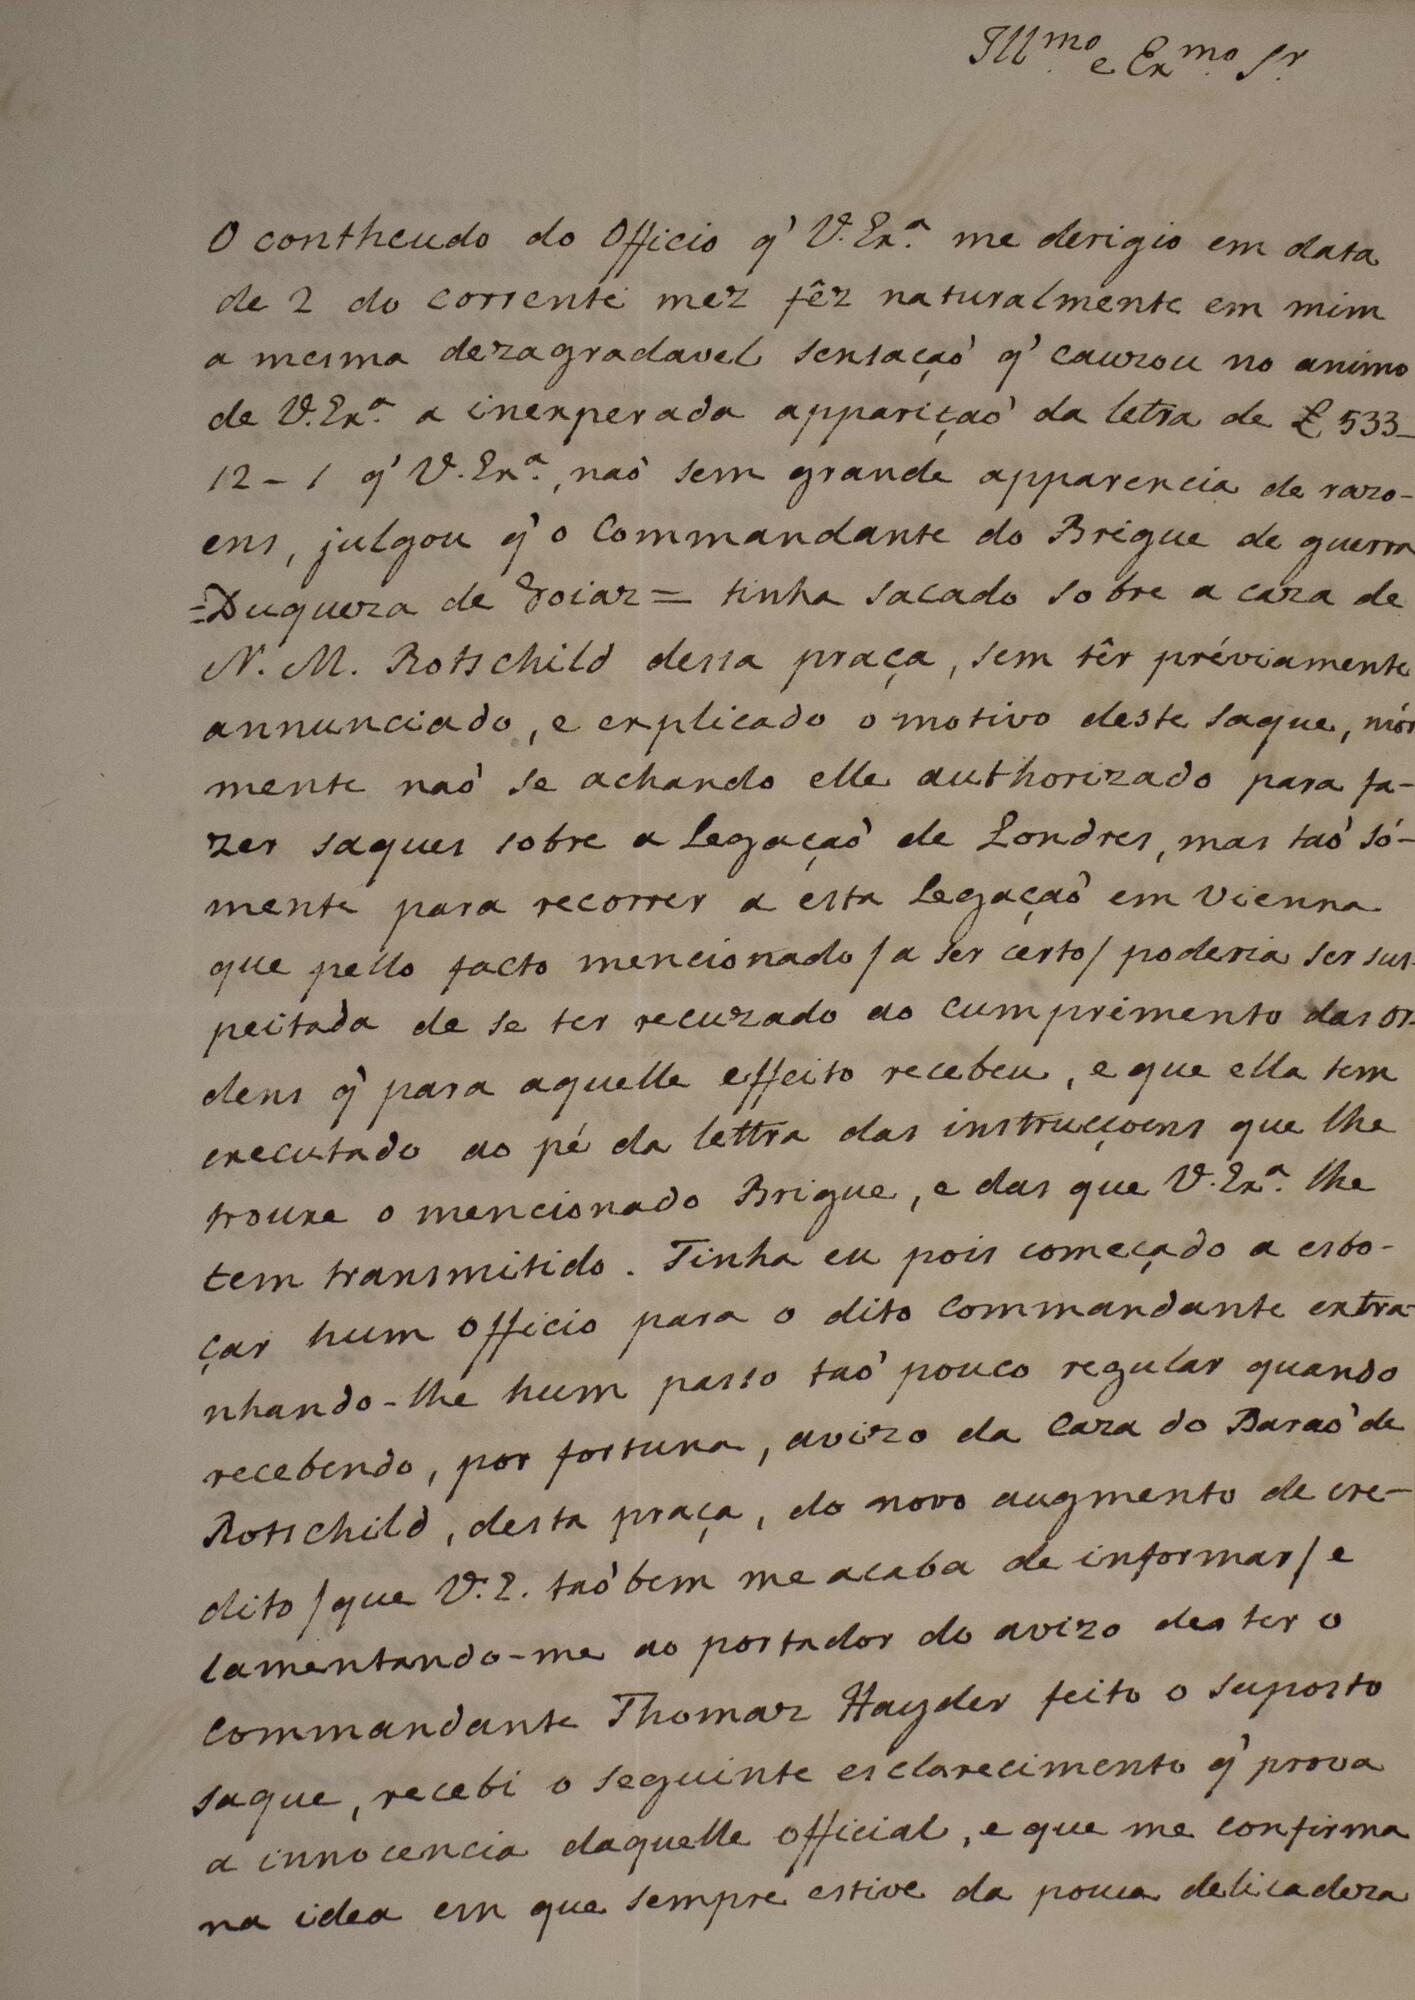 Ill.mo e Ex.mo Sr.
O contheudo do Officio q' V. Ex.a me derigio em data
de 2 do corrente mez fêz naturalmente em mim
a mesma dezagradavel sensaçaõ q' cauzou no animo
de V. Ex.a a inexperada appariçaõ da letra de £ 533_
12 - 1 q' V. Ex.a, naõ sem grande apparencia de razo-
ens, julgou q' o Commandante do Brigue de guerra
=Duqueza de Goiaz= tinha sacado sobre a caza de
N. M. Rotschild dessa praça, sem têr préviamente
annunciado, e explicado o motivo deste saque, mór
mente naõ se achando elle authorizado para fa-
zer saques sobre a Legaçaõ de Londres, mas taõ só-
mente para recorrer a esta Legaçaõ em Vienna
que pello facto mencionado / a ser certo / poderia ser sus-
peitada de se ter recuzado ao cumprimento das or-
dens q' para aquelle effeito recebeu, e que ella tem
executado ao pé da lettra das instrucçoens que lhe
trouxe o mencionado Brigue, e das que V. Ex.a lhe
tem transmitido. Tinha eu pois começado a esbo-
çar hum officio para o dito Commandante extra-
nhando-lhe hum passo taõ pouco regular quando
recebendo, por fortuna, avizo da Caza do Baraõ de
Rotschild, desta praça, do novo augmento de cre-
dito / que V. E. taõbem me acaba de informar / e
lamentando-me ao portador do avizo de ter o
Commandante Thomaz Hayder feito o suposto
saque, recebi o seguinte esclarecimento q' prova
a innocencia daquelle official, e que me confirma
na idea em que sempre estive da pouca delicadeza